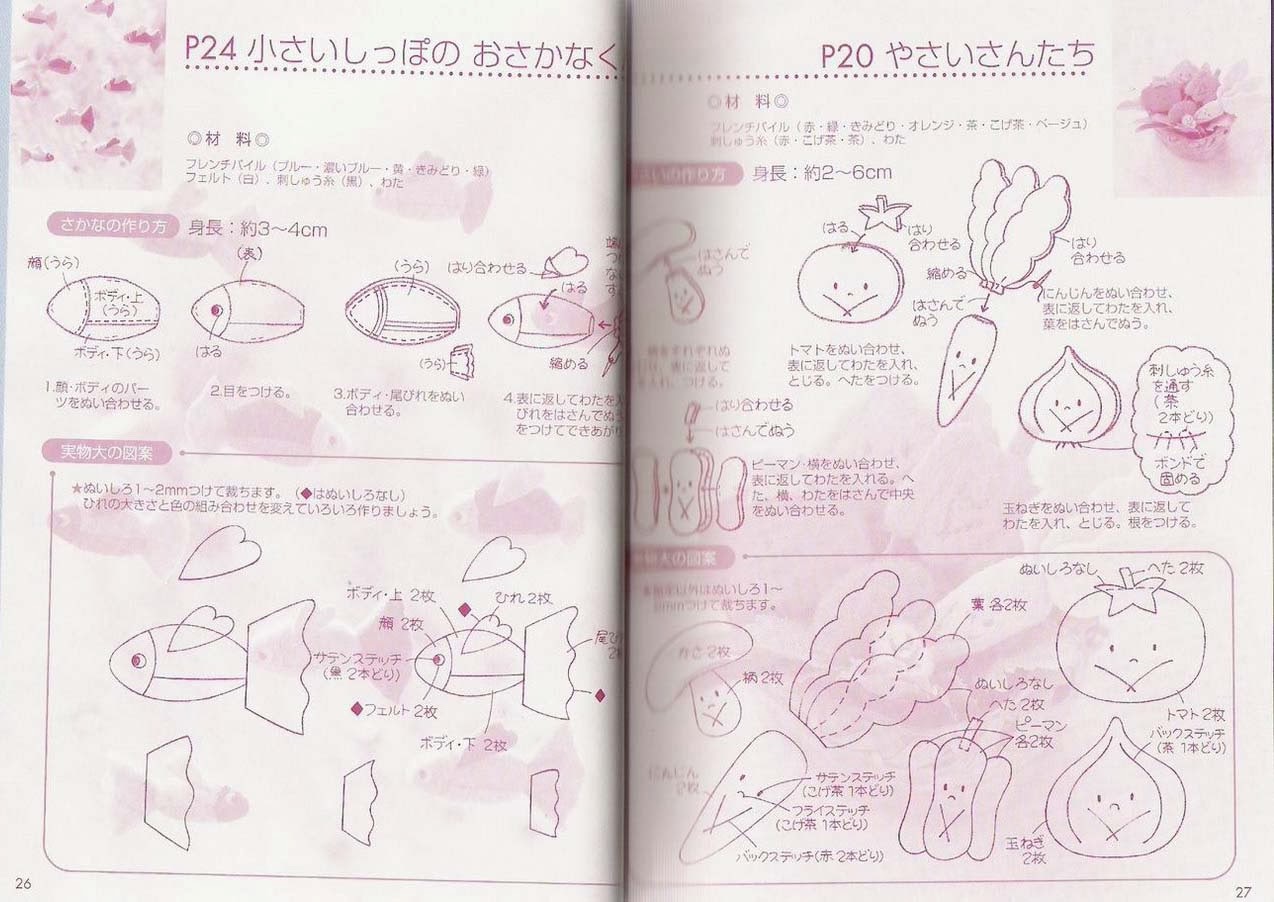 P24 小さいしっぽの おさかなく
◎材 料◎
フレンチパイル(ブルー・濃いブルー・黄・きみどり・緑)
フェルト(白)、刺しゅう糸(黒)、わた
さかなの作り方
身長:約3〜4cm
顔(うら)
ボディ・上
(うら)
ボディ・下(うら)
1.顔・ボディのパー
ツをぬい合わせる。
(表)
はる
2.目をつける。
(うら)
(うら)
3.ボディ・尾びれをぬい
合わせる。
はり合わせる
はる
縮める
4.表に返してわたを入
びれをはさんでぬう
をつけてできあが
実物大の図案
★ぬいしろ1〜2mmつけて裁ちます。(◆はぬいしろなし)
ひれの大きさと色の組み合わせを変えていろいろ作りましょう。
ボディ・上 2枚
ひれ 2枚
顔 2枚
サテンステッチ
(黒 2本どり)
◆フェルト 2枚
ボディ・下 2枚
26
P20 やさいさんたち
◎材 料◎
フレンチパイル(赤・緑・きみどり・オレンジ・茶・こげ茶・ベージュ)
刺しゅう糸(赤・こげ茶・茶)、わた
さいの作り方
身長:約2〜6cm
はさんで
ぬう
はる
はり
合わせる
トマトをぬい合わせ、
表に返してわたを入れ、
とじる。へたをつける。
はり
合わせる
縮める
はさんで
ぬう
にんじんをぬい合わせ、
表に返してわたを入れ、
葉をはさんでぬう。
はり合わせる
はさんでぬう
ピーマン・横をぬい合わせ、
表に返してわたを入れる。へ
た、横、わたをはさんで中央
をぬい合わせる。
刺しゅう糸
を通す
(茶
2本どり)
ボンドで
固める
玉ねぎをぬい合わせ、表に返して
わたを入れ、とじる。根をつける。
物大の図案
以外はぬいしろ1〜
2mmつけて裁ちます。
かさ 2枚
柄 2枚
葉 各2枚
ぬいしろなし
へた 2枚
トマト 2枚
ぬいしろなし
へた 2枚
ピーマン
各2枚
バックステッチ
(茶 1本どり)
にんじん
2枚
サテンステッチ
(こげ茶 1本どり)
フライステッチ
(こげ茶 1本どり)
バックステッチ(赤 2本どり)
玉ねぎ
2枚
27